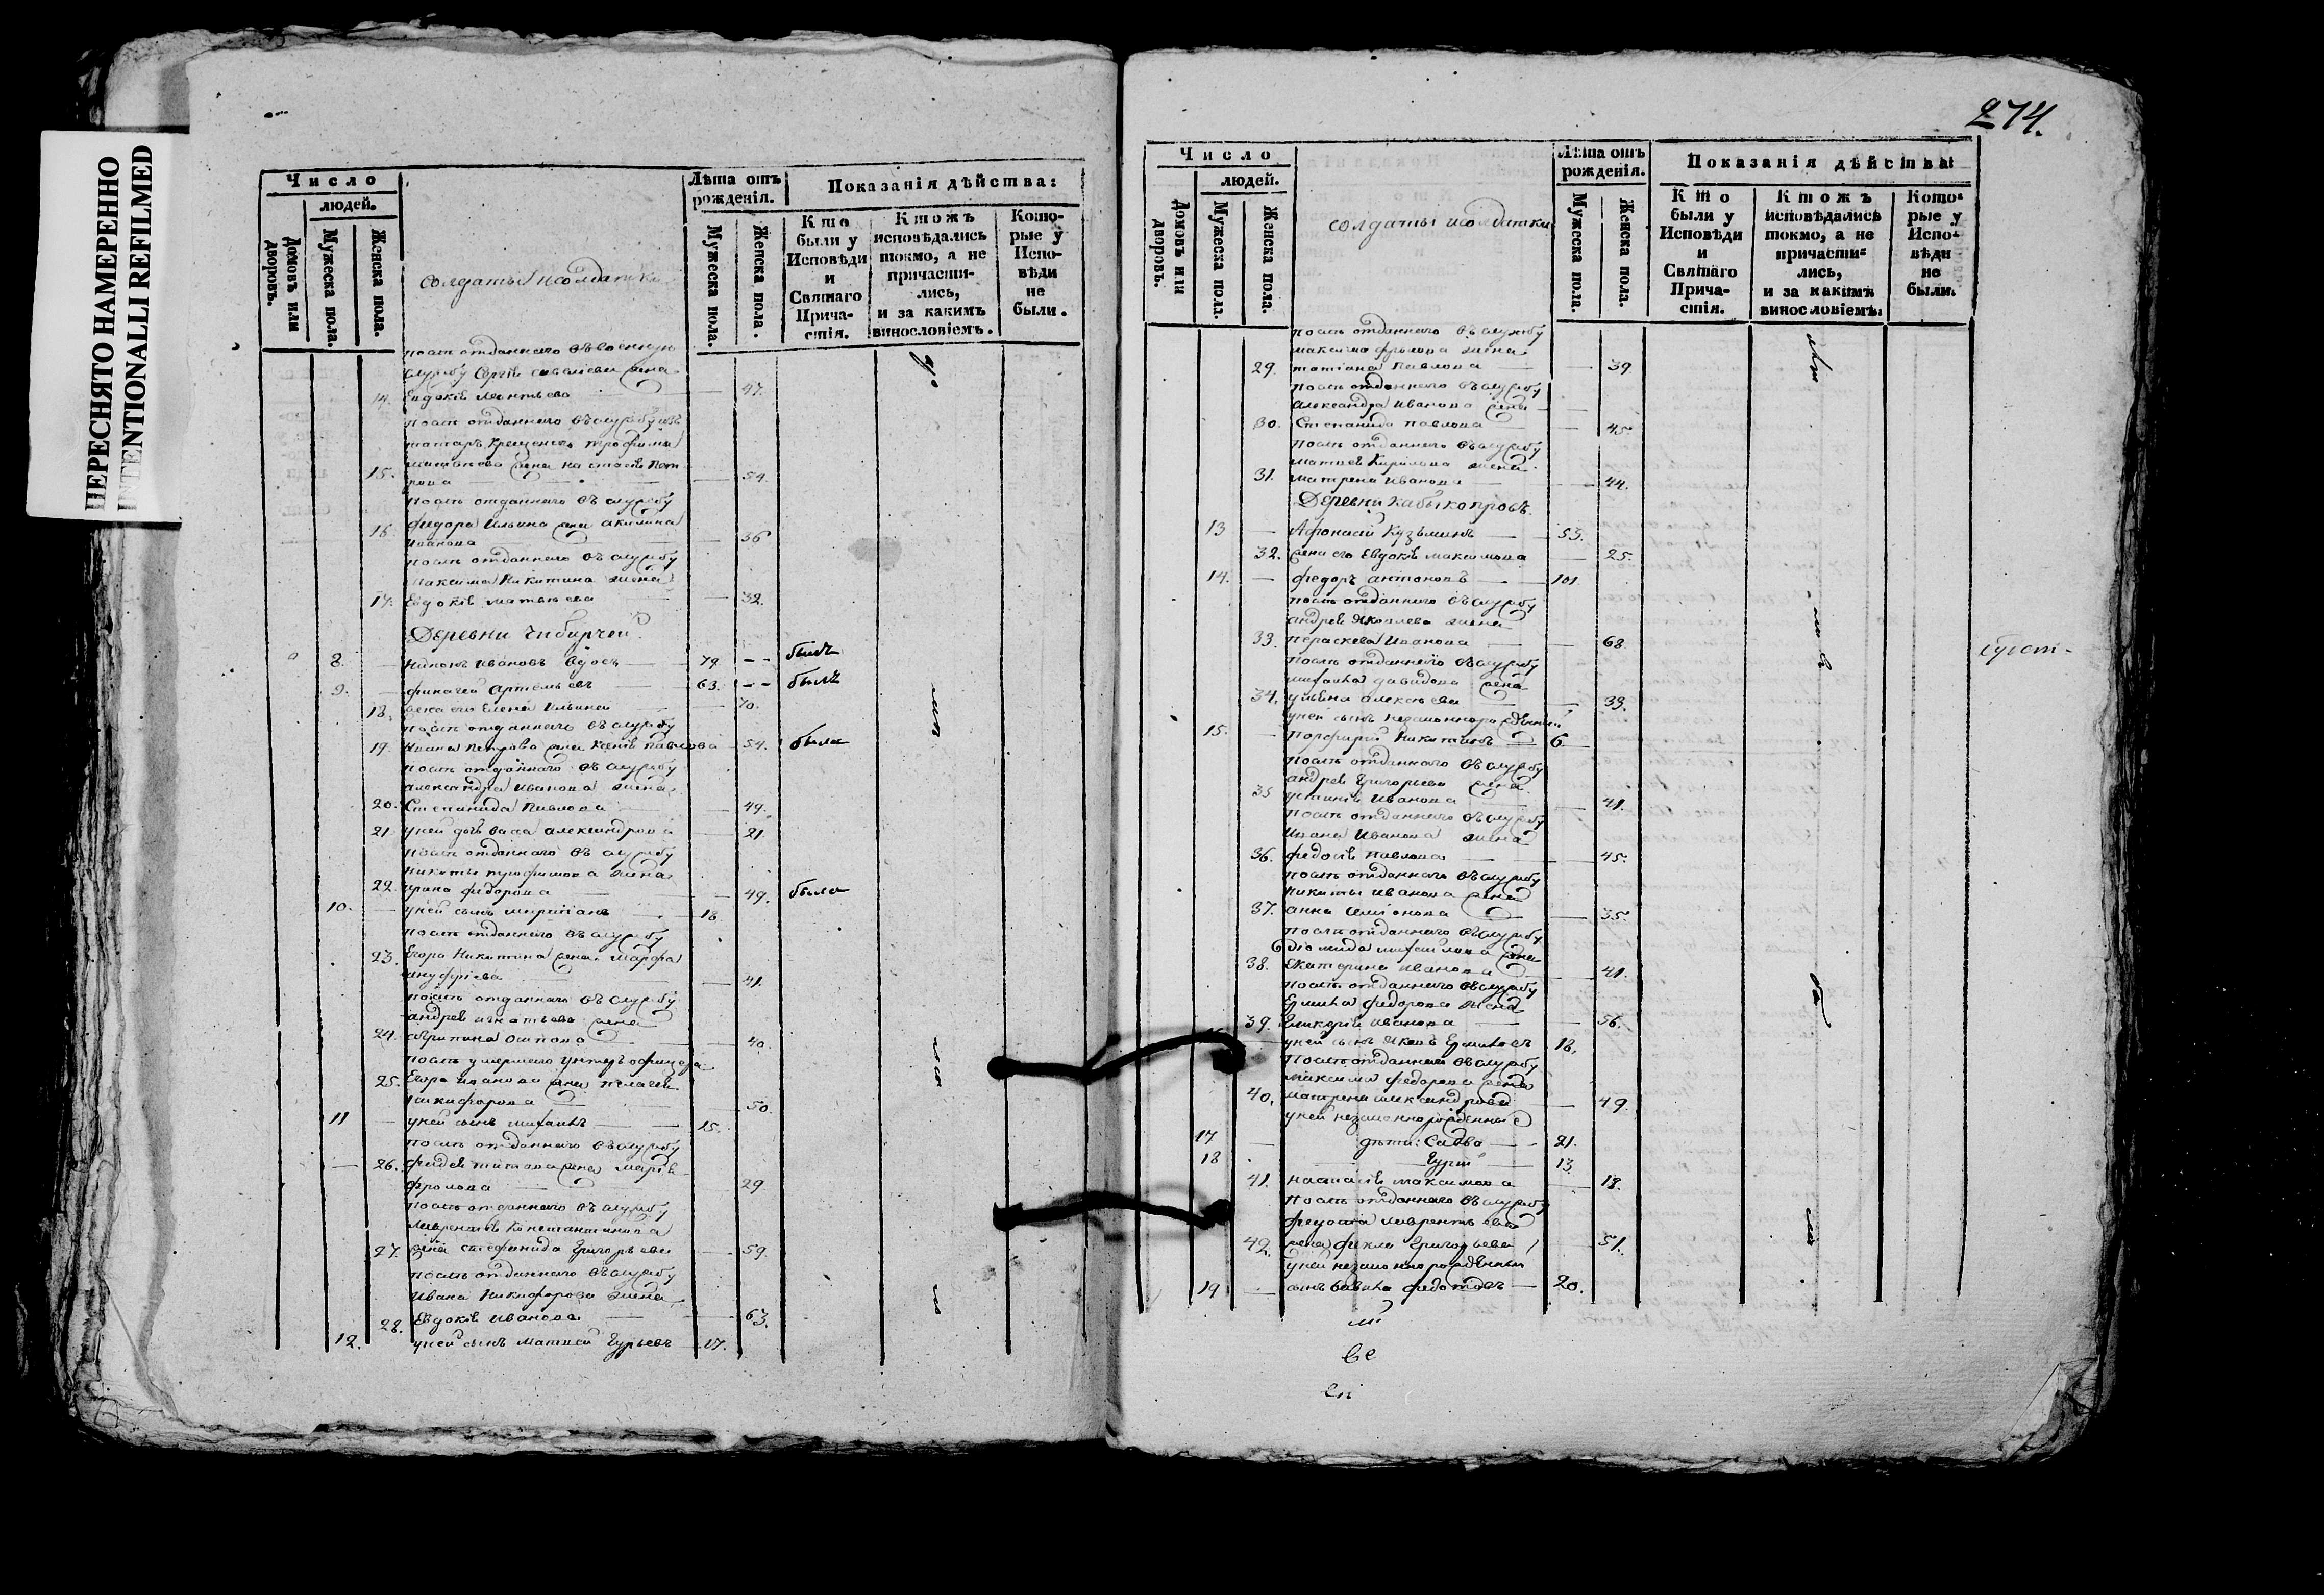 ПЕРЕСНЯТО НАМЕРЕННО
INTENTIONALLI REFILMED
Число
людей.
Домовъ или дворовъ.
Мужеска пола.
Женска пола.
солдаты и солдатки
Лѣта отъ рожденія.
Мужеска пола.
Женска пола.
Показанія дѣйства:
Кто были у Исповѣди и Святаго Причастія.
Ктожъ исповѣдались токмо, а не причастились, и за какимъ винословіемъ.
Которые у Исповѣди не были.
посль отданнаго въ военную
службу Сергія савелієва жена
14. Евдокія Леонтьева 47.
посль отданнаго въ службу изъ
татаръ крещеныхъ трофима
15. жена настасія Пет
рова 54.
посль отданнаго въ службу
16. федора Ильина жена акилина
Иванова 36
посль отданнаго въ службу
максима Никитина жена
17. Евдокія матвѣева 32.
Деревни Чибирчей
8. Никонъ Ивановъ вдовъ 79 былъ
9. финагей Артемьевъ 63. былъ
18. жена его Елена Ильина 70.
посль отданнаго въ службу
19. Ивана Петрова жена Ксенія Павлова 54. была
посль отданнаго въ службу
александра Иванова жена
20. Степанида Павлова 49.
21. у ней дочь васса александрова 21.
посль отданнаго въ службу
никиты трофимова жена
22. ирина федорова 49. была
10. у ней сынъ 18
посль отданнаго въ службу
23. Егора Никитина жена Марфа
ануфріева 41.
посль отданнаго въ службу
андрея игнатьева жена
24. Осипова 40.
посль умершаго унтеръ офицера
25. Егора иванова жена пелагея
никифорова 50.
11 у ней сынъ михаилъ 15.
посль отданнаго въ службу
26. титова жена марія
фролова 29
посль отданнаго въ службу
лаврентія Константинова
27. жена стефанида Григорьева 59.
посль отданнаго въ службу
Ивана Никифорова жена
28. Евдокія Иванова 63.
12. у ней сынъ Матвей Гурьевъ 17.
274.
Число
людей.
Домовъ или дворовъ.
Мужеска пола.
Женска пола.
солдаты и солдатки
Лѣта отъ рожденія.
Мужеска пола.
Женска пола.
Показанія дѣйства:
Кто были у Исповѣди и Святаго Причастія.
Ктожъ исповѣдались токмо, а не причастились, и за какимъ винословіемъ.
Которые у Исповѣди не были.
посль отданнаго въ службу
максима фролова жена
29. татіана Павлова 39
посль отданнаго въ службу
александра Иванова жена
30. Степанида павлова 45.
посль отданнаго въ службу
матвея Кирилова жена
31. матрена Иванова 44.
Деревни Кабыкопровъ.
13 Афонасій Кузьминъ 53.
32. жена его Евдокія максимова 25.
14. федоръ антоновъ 101.
посль отданнаго въ службу
андрея Яковлева жена
33. пераскева Иванова 68.
посль отданнаго въ службу
михаила давидова жена
34. ульяна алексѣева 33.
у ней сынъ незаконнорожденный
15. Порфирій Никитинъ 6
посль отданнаго въ службу
андрея Григорьева жена
35 устинія Иванова 41.
посль отданнаго въ службу
Ивана Иванова жена
36. федосія Павлова 45.
посль отданнаго въ службу
никиты иванова жена
37. анна семіонова 35.
посль отданнаго въ службу
діомида михайлова жена
38. Екатерина иванова 41.
посль отданнаго въ службу
Ермила федорова жена
39. Гликерія иванова 56.
у ней сынъ Ермиловъ 18.
посль отданнаго въ службу
максима федорова жена
40. матрена александрова 49.
у ней незаконнорожденные
17 дѣти: Савва 21.
18 Гурій 13.
41. настасія максимова 18.
посль отданнаго въ службу
федота лаврентьева
42. жена фекла Григорьева 51.
у ней незаконнорожденный
19 сынъ вавила федотовъ 20.